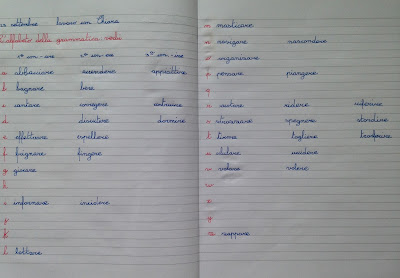 settembre lavoro con Chiara
L'alfabeto della grammatica: verbi
1ª con. -are 2ª con. -ere 3ª con. -ire
a abbracciare accendere appiattire
b bagnare bere
c cantare correggere costruire
d discutere dormire
e effettuare espellere
f frignare fingere
g giocare
h
i informare incidere
j
k
l lottare
m masticare
n navigare nascondere
o organizzare
p pensare piangere
q
r ruotare ridere
s stressare spegnere stordire
t togliere trasferire
u ululare uccidere
v volare volere
w
x
y
z zappare